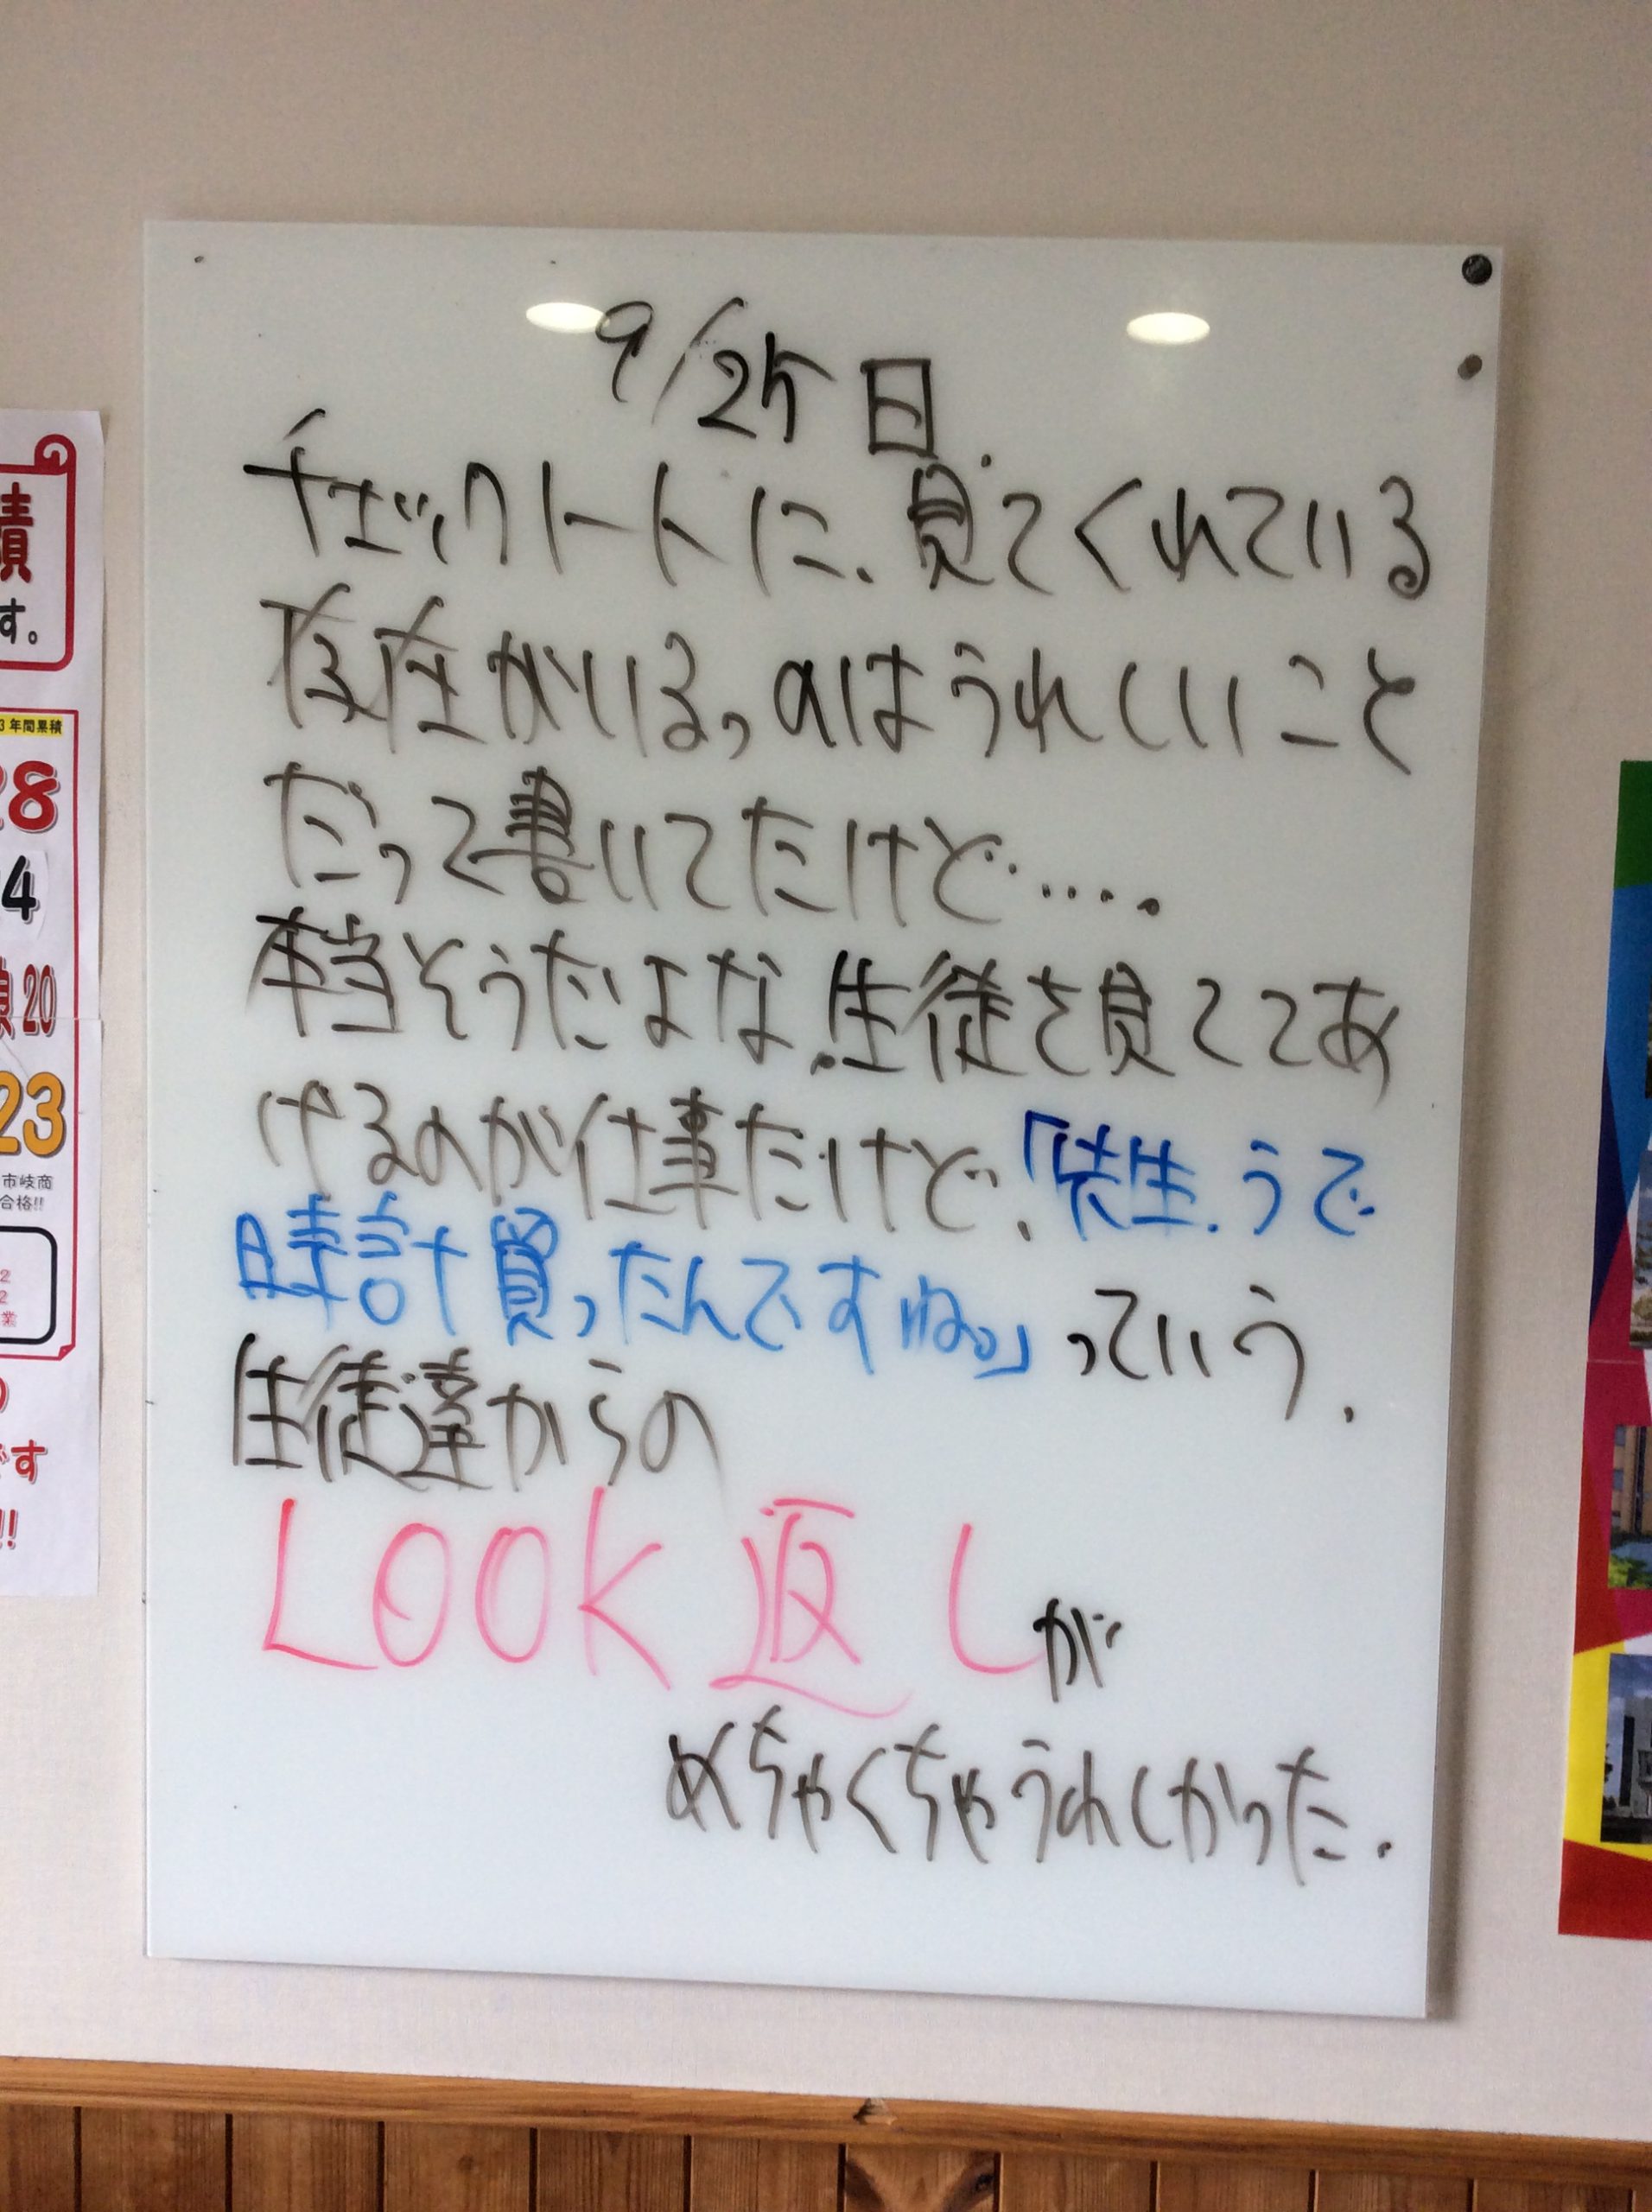 9/25 日.
チェックノートに、見てくれている
存在がいるっのはうれしいこと
だって書いてたけど・・・・.
本当そうだよな.生徒を見ててあ
げるのが仕事だけど.「先生.うで
時計買ったんですね。」っていう.
生徒達からの
LOOK返しが
めちゃくちゃうれしかった.
績
す。
3年間累積
28
4
20
23
市岐商
合格!!
2
2
業
です
!!